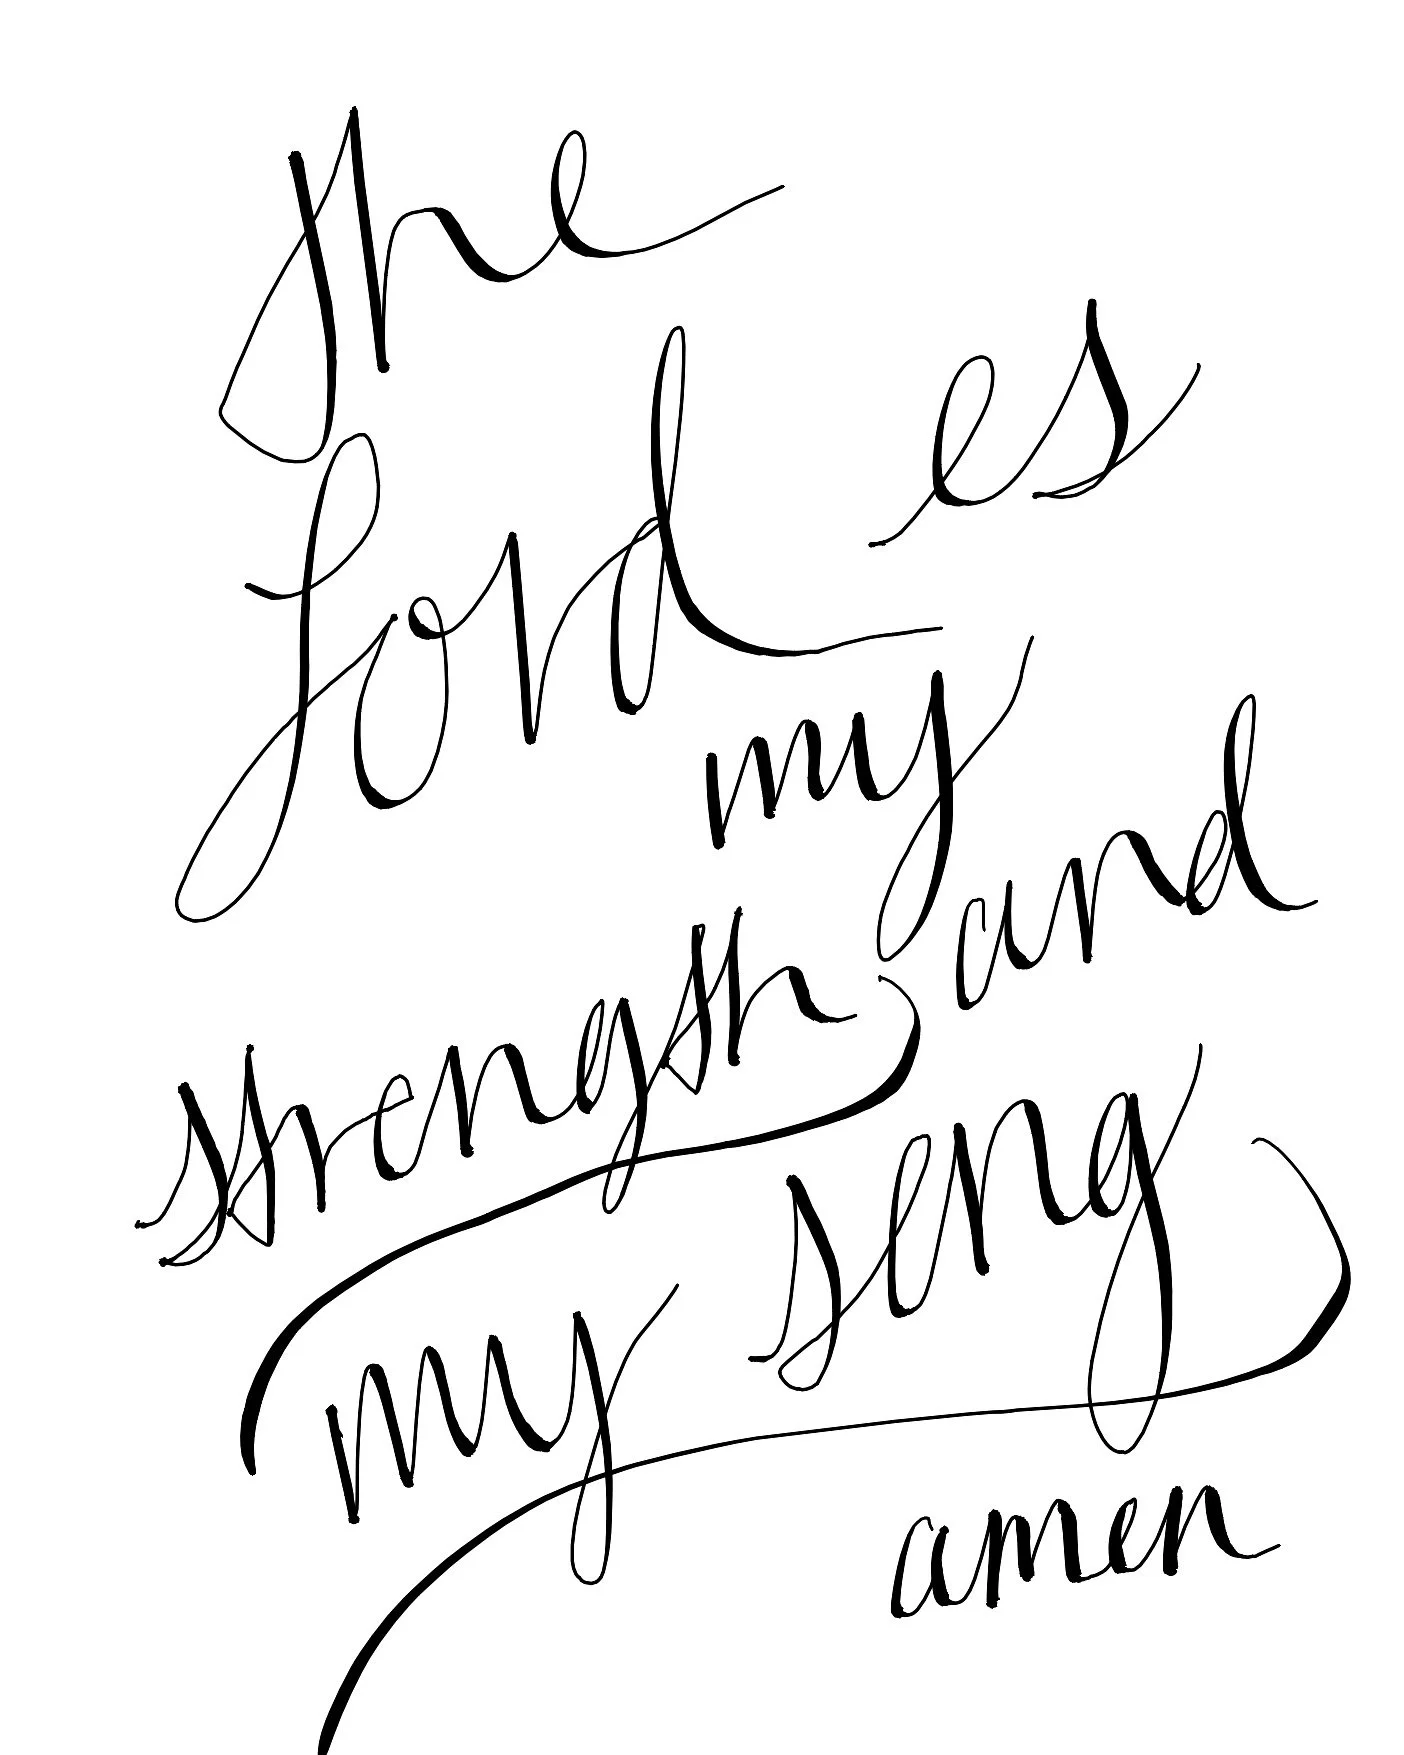 the
Lord es
my
strength and
my seng
amen